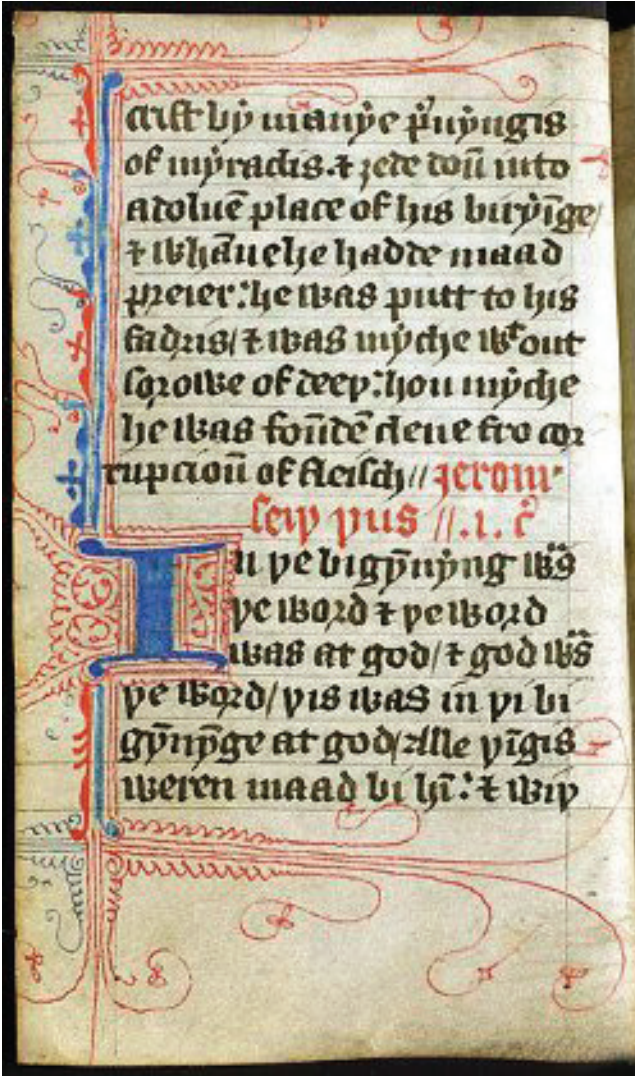 crist bẏ manẏe p̲uẏngis
of mẏraclis. ⁊ ȝede doū into
a doluē place of his biryīge/
⁊ whāne he hadde maad
preier: he was putt to his
fadris/ ⁊ was mẏche wᵗ out
sorowe of deeþ: hou mẏche
he was foūdē clene fro cor
rupcioū of fleisch // Jerom
seiþ þus //. 1. cͦ
In þe bigẏ̄nẏng was
þe word ⁊ þe word
was at god/ ⁊ god was
þe word/ þis was in þi bi
gẏ̄nẏ̄ge at god/ Alle þīgis
weren maad bi hī: ⁊ wiþ